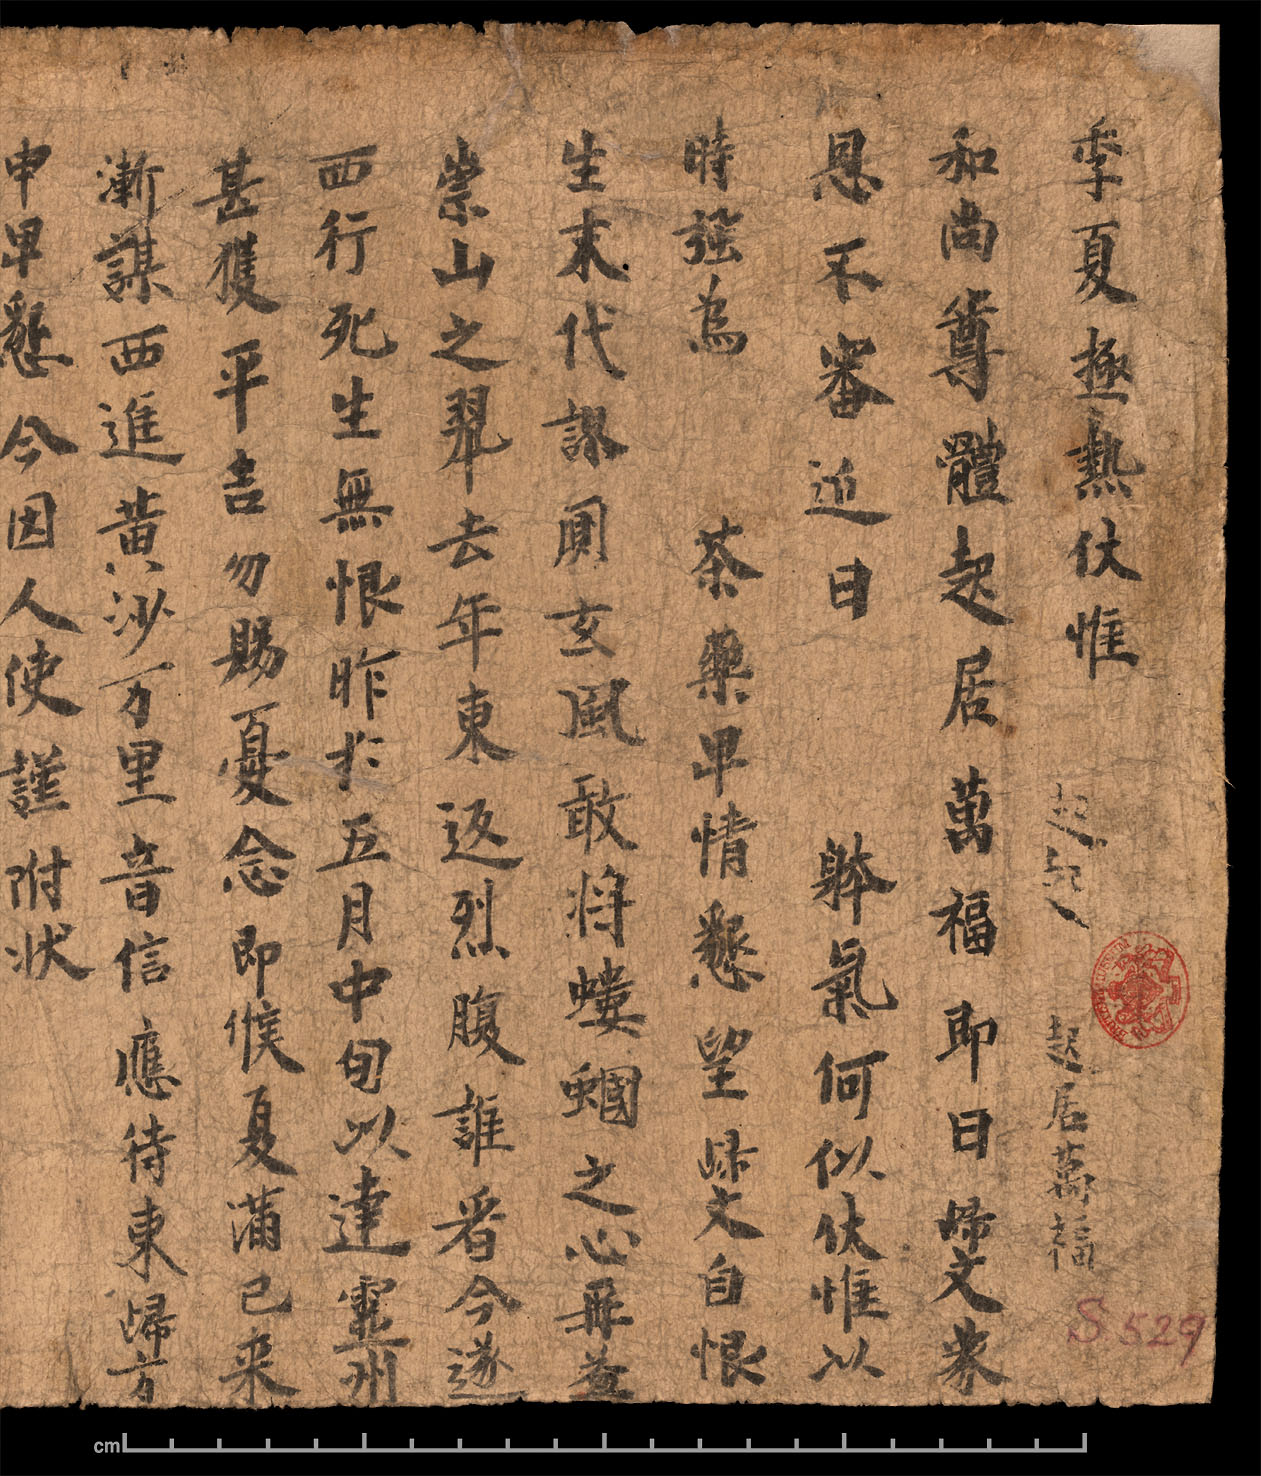 季夏極熱伏惟
起起
起居萬福
和尚尊體起居萬福即日歸文蒙
恩不審近日 體氣何似伏惟以
時強為 茶藥卑情懇望歸文自恨
生末代謬闡玄風敢將螻蟈之心再益
崇山之翠去年東返烈腹誰看今遂
西行死生無恨昨於五月中旬以達靈州
甚獲平吉勿賜憂念即候夏滿已来
漸謀西進黃沙万里音信應待東歸方
申卑懇今因人使謹附状
S 529